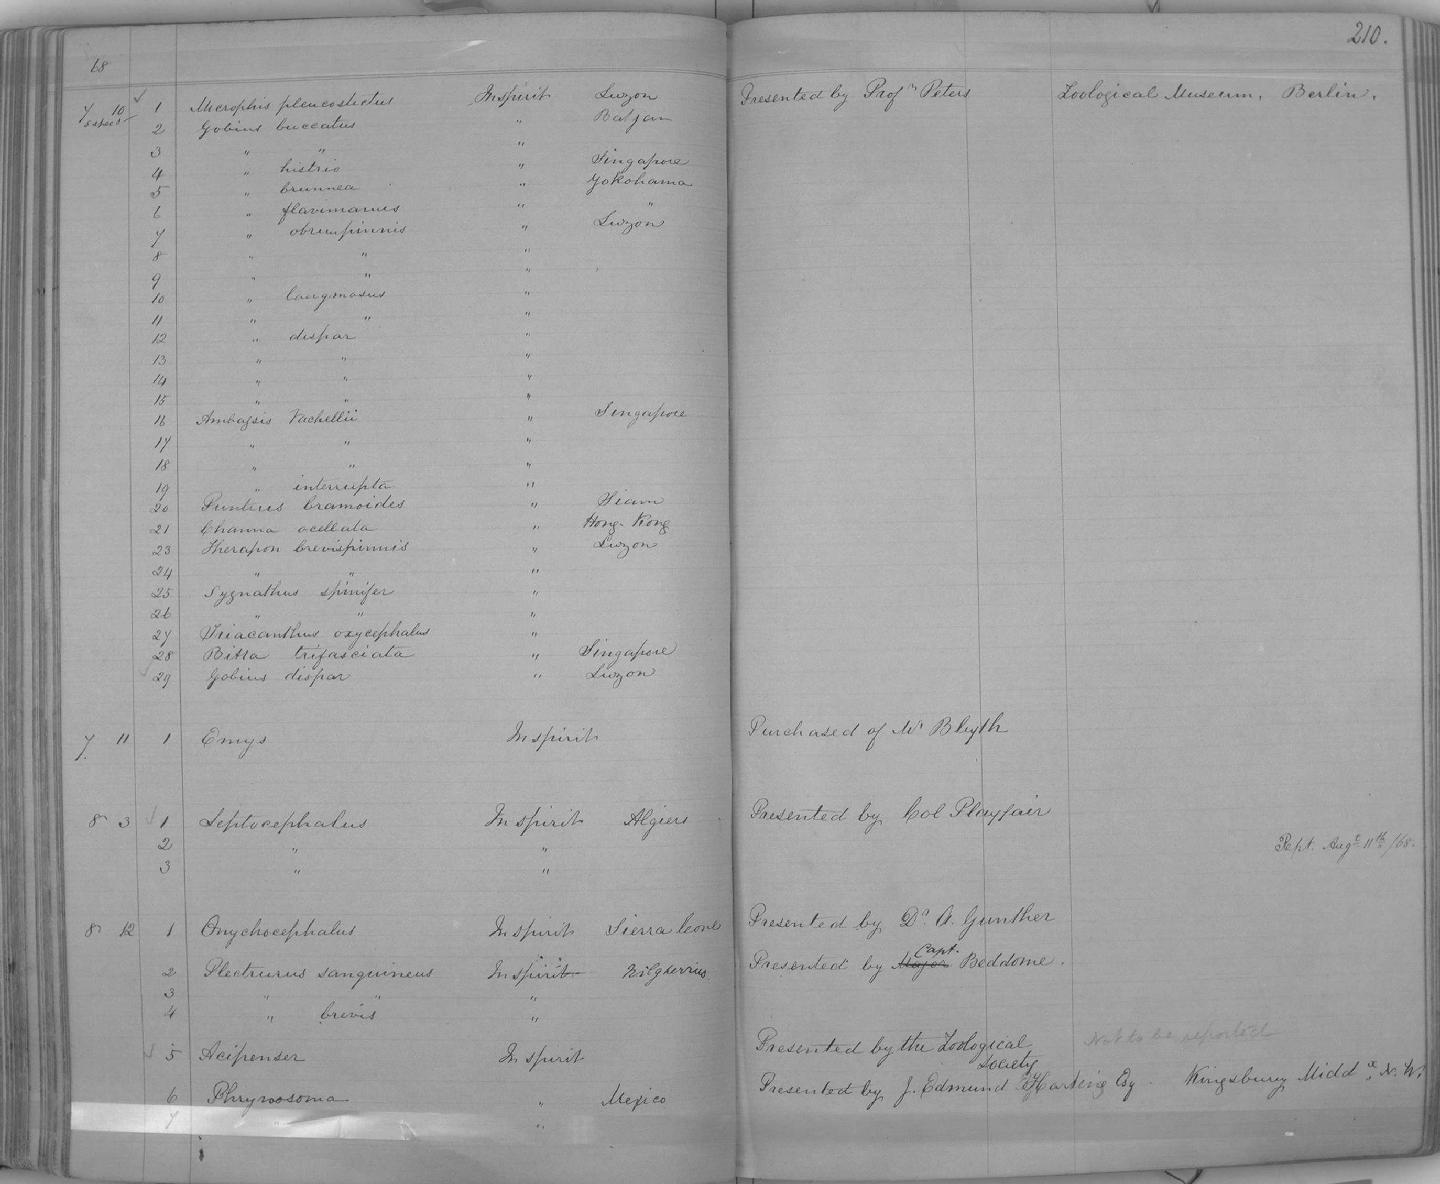 210.
68
7 10 1 Microphis pleurostictus In spirit Luzon Presented by Prof Peters Zoological Museum, Berlin.
2 Gobius buccatus " Batjan
3 " " "
4 " histrio " Singapore
5 " brunnea " Yokohama
6 " flavimanus " "
7 " " Luzon
8 " " "
9 " " "
10 " "
11 " " "
12 " dispar "
13 " " "
14 " " "
15 " " "
16 Ambassis Vachellii " Singapore
17 " " "
18 " " "
19 " interrupta "
20 Puntius bramoides " Siam
21 Channa ocellata " Hong-Kong
23 Therapon brevispinnis " Luzon
24 " " "
25 Sygnathus spinifer "
26 " " "
27 Triacanthus oxycephalus "
28 trifasciata " Singapore
29 Gobius dispar " Luzon
7. 11 1 Emys In spirit Purchased of Mr Blyth
8 3 1 Leptocephalus In spirit Algiers Presented by Col Playfair
2 " "
3 " "
Rept. Augt 11th /68.
8 12 1 Onychocephalus In spirit Sierra leone Presented by Dr. A. Gunther
2 Plectrurus sanguineus In spirit Nilgherries Presented by Major Capt. Beddome.
3 " " "
4 " brevis "
5 Acipenser In spirit Presented by the Zoological Society Not to be reported
6 Phrynosoma " Mexico Presented by J. Edmund Harting Esq. Kingsbury Middx. N.W.
7 " "